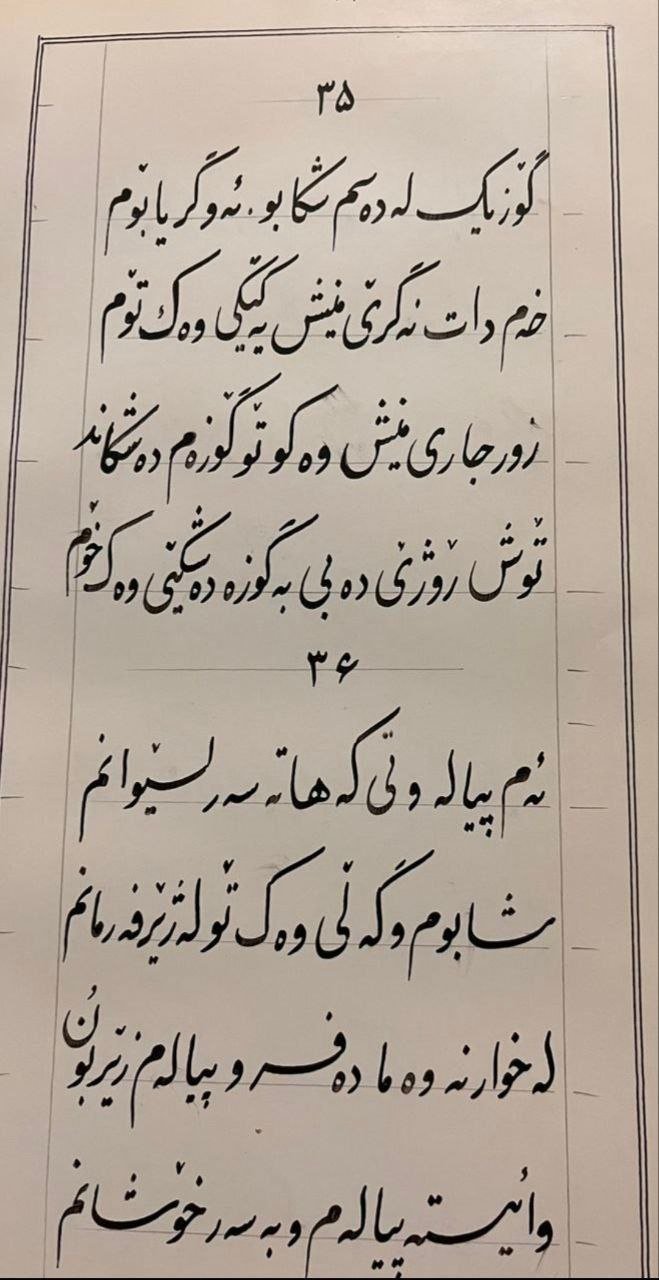 ۳۵
گۆزیک لە دەسم شکا بو. ئەو گریا بۆم
خەم دات نەگرێ منیش یەکێکی وەک تۆم
زور جاری منیش وەکو تۆ گۆزەم دەشکاند
تۆش رۆژێ دەبی بە گوزە دەشکێنی وەک خۆم
۳۶
ئەم پیالە وتی کە هاتە سەر لسێوانم
شا بوم و گەلێ وەک تۆ لە ژێر فەرمانم
لە خوارنەوە مادەفر و پیالەم زێر بون
وا ئیستە پیالەم و بە سەر خۆشانم